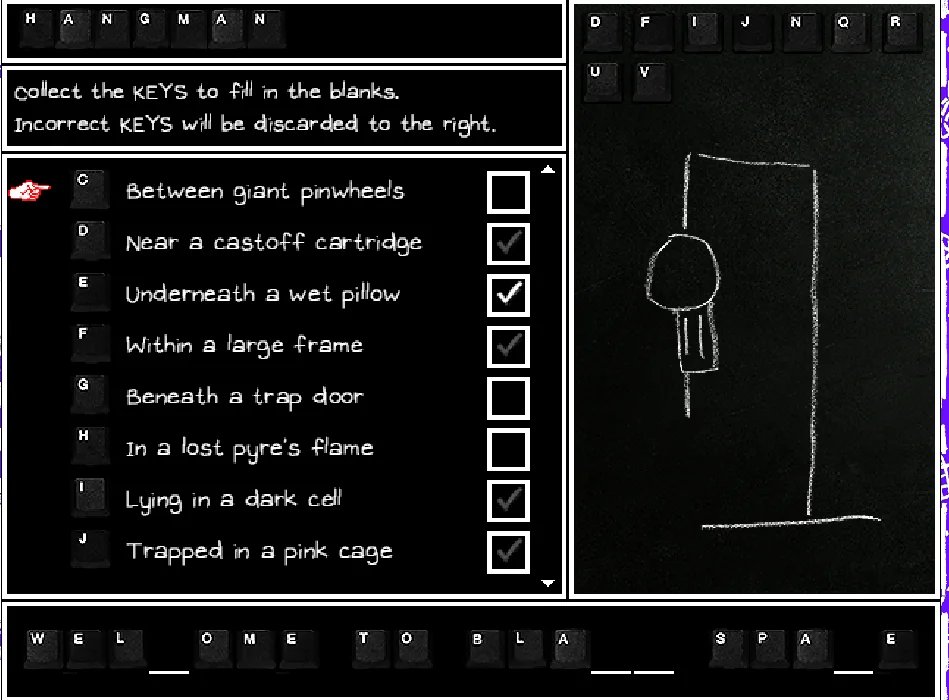 H A N G M A N
Collect the KEYS to fill in the blanks.
Incorrect KEYS will be discarded to the right.
C Between giant pinwheels
D Near a castoff cartridge
E Underneath a wet pillow
F Within a large frame
G Beneath a trap door
H In a lost pyre's flame
I Lying in a dark cell
J Trapped in a pink cage
D F I J N Q R
U V
W E L _ O M E T O B L A _ _ S P A _ E